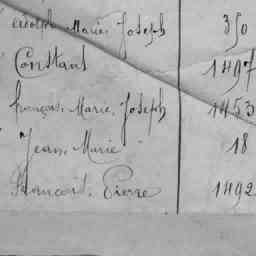 Marie Joseph 350
Constant 1497
François, Marie, Joseph 1453
Jean, Marie 18
François, Pierre 1492